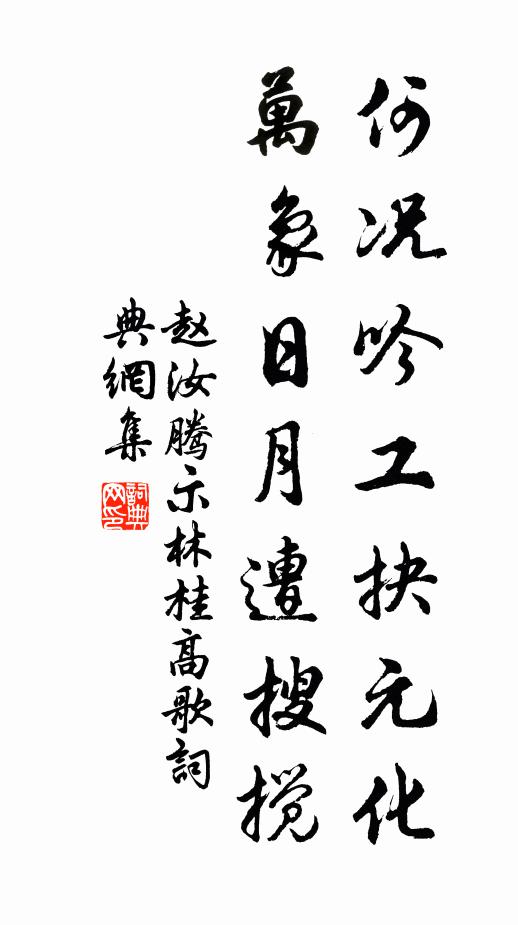 何况吟工抉元化
萬象日月遭搜搅
赵汝腾示林桂高歌詞
典網集
詞典网印